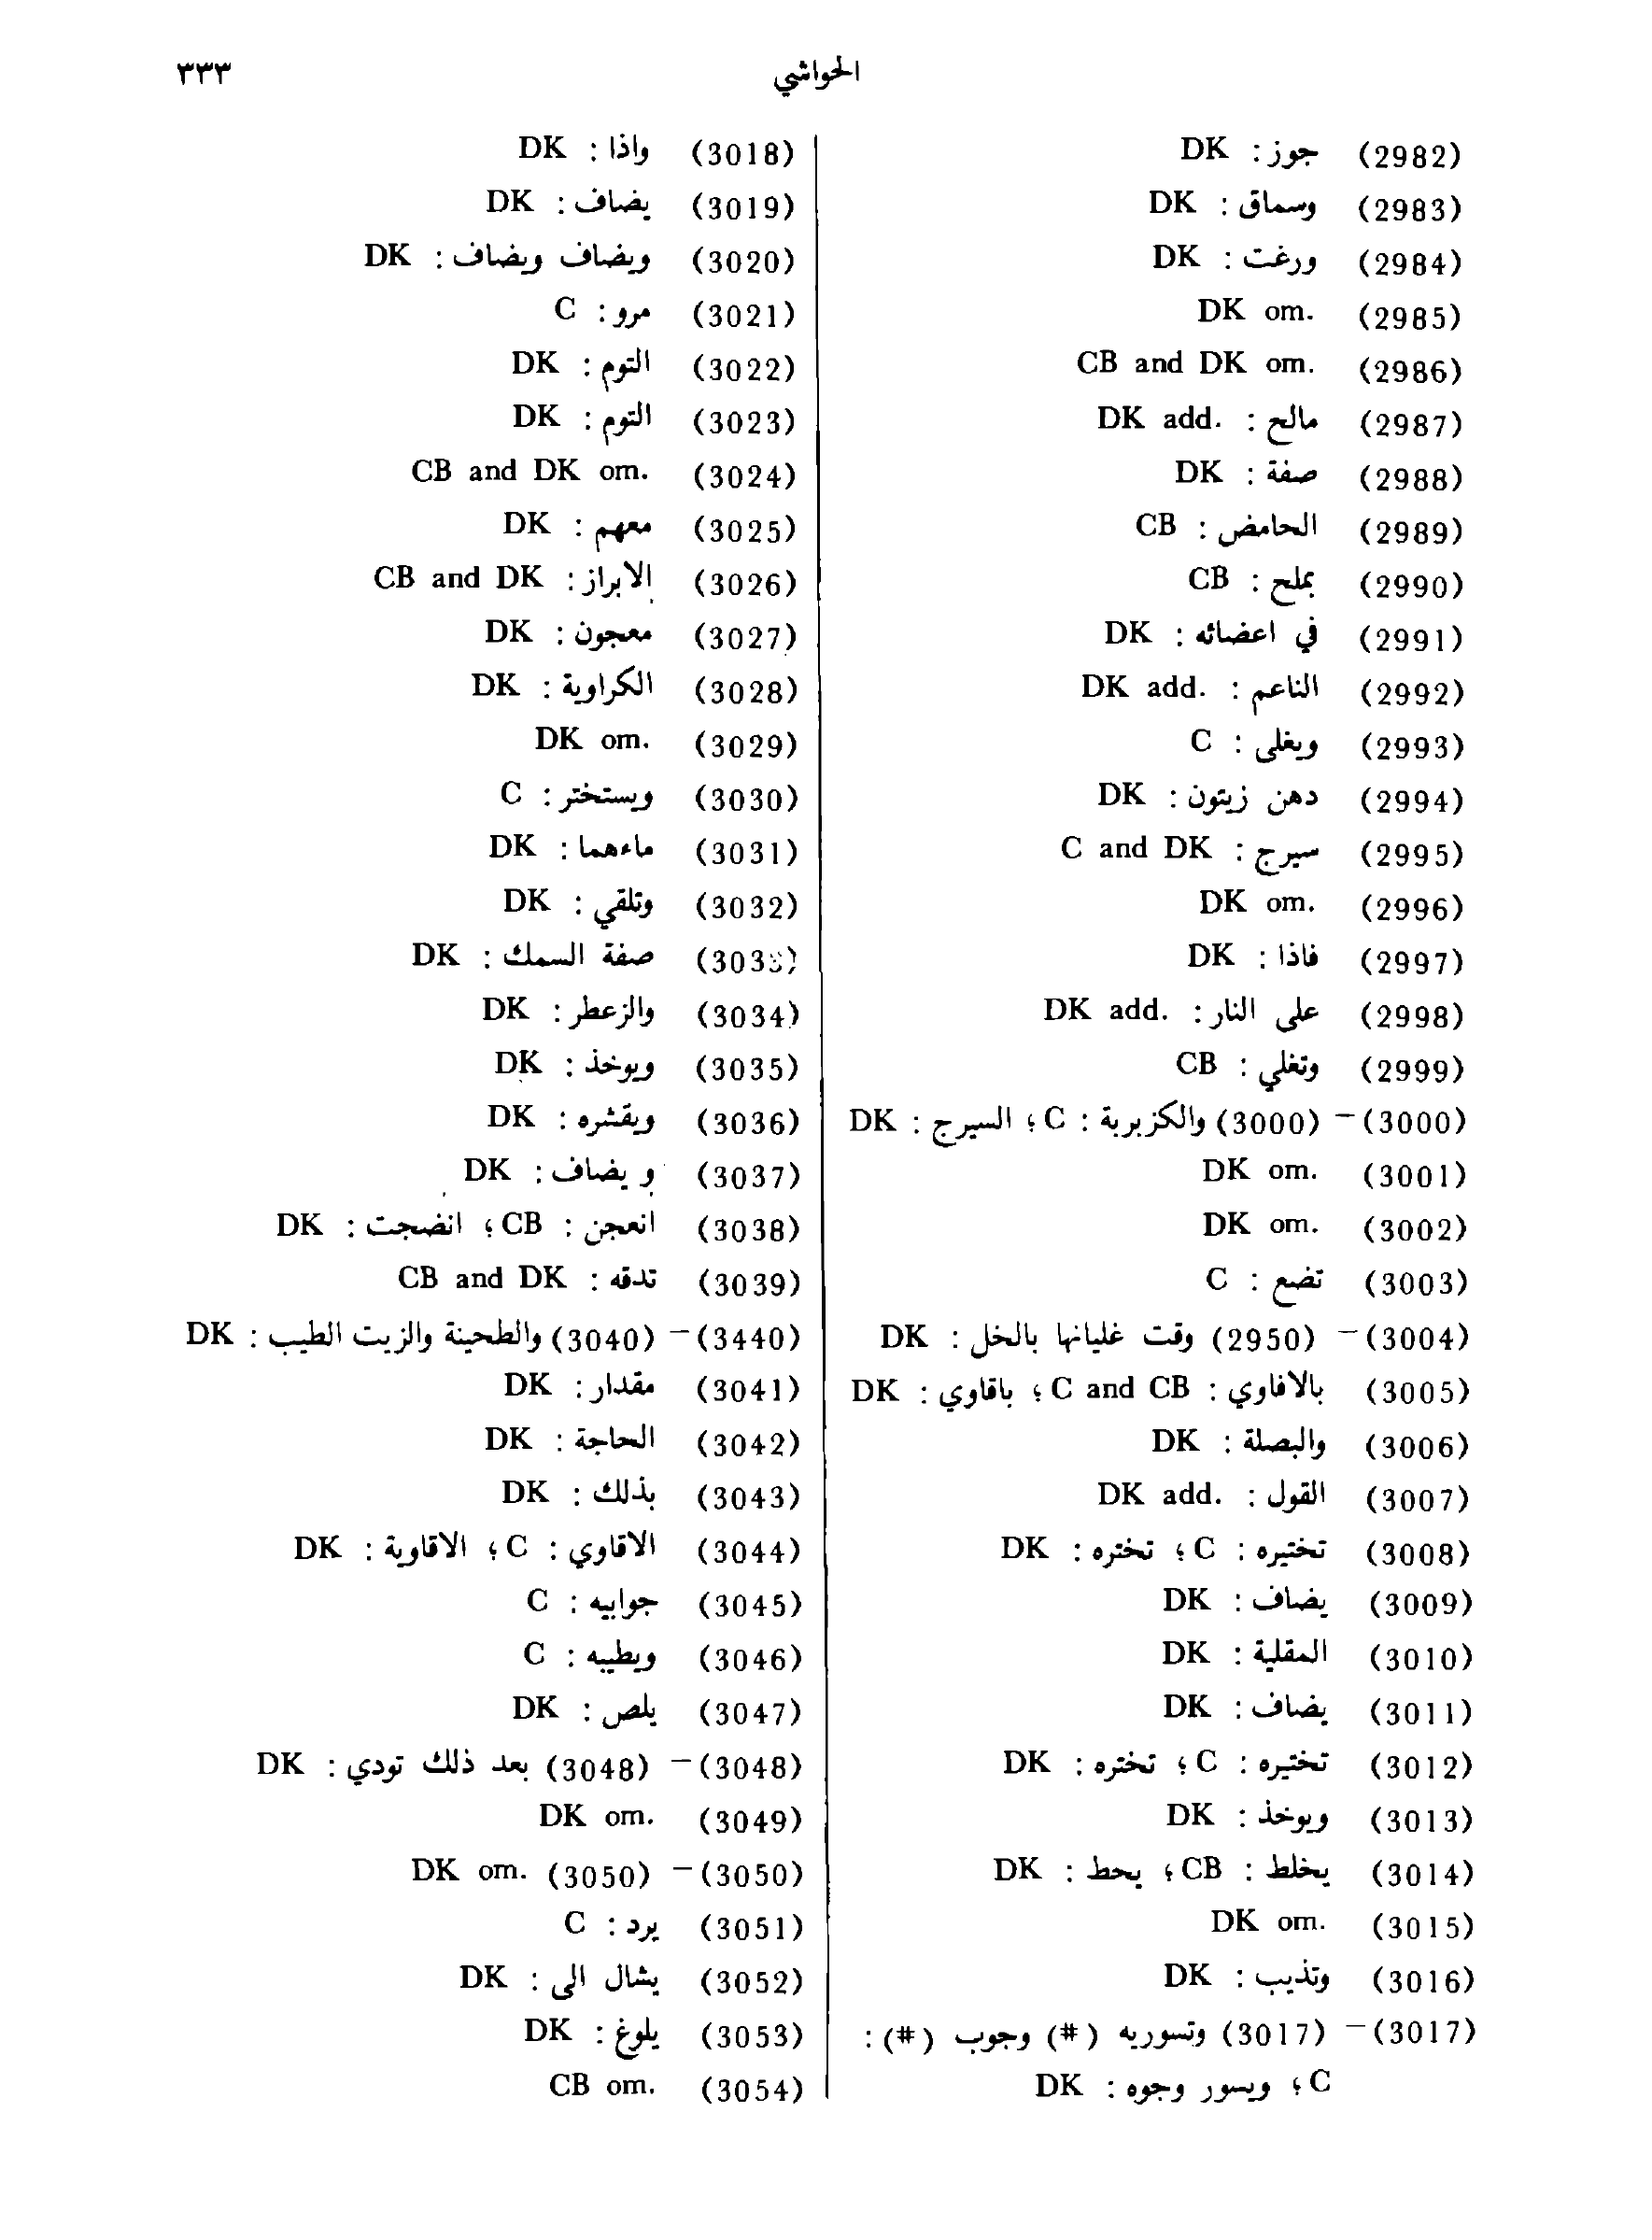 الحواشي ٣٣٣
(2982) جوز : DK
(2983) وسماق : DK
(2984) ورغت : DK
(2985) DK om.
(2986) CB and DK om.
(2987) مالح : DK add.
(2988) صفة : DK
(2989) الحامض : CB
(2990) بملح : CB
(2991) في اعضائه : DK
(2992) الناعم : DK add.
(2993) ويغلى : C
(2994) دهن زيتون : DK
(2995) سيرج : C and DK
(2996) DK om.
(2997) فاذا : DK
(2998) على النار : DK add.
(2999) وتغلي : CB
(3000) – (3000) والكزبرية : C ؛ السيرج : DK
(3001) DK om.
(3002) DK om.
(3003) تضع : C
(3004) – (2950) وقت غليانها بالخل : DK
(3005) بالافاوي : C and CB ؛ باقاوي : DK
(3006) والبصلة : DK
(3007) القول : DK add.
(3008) تختيره : C ؛ تختره : DK
(3009) يضاف : DK
(3010) المقلية : DK
(3011) يضاف : DK
(3012) تختيره : C ؛ تختره : DK
(3013) ويوخذ : DK
(3014) يخلط : CB ؛ يحط : DK
(3015) DK om.
(3016) وتذيب : DK
(3017) – (3017) وتسوريه (#) وجوب (#) :
C ؛ ويسور وجوه : DK
(3018) واذا : DK
(3019) يضاف : DK
(3020) ويضاف ويضاف : DK
(3021) مرو : C
(3022) التوم : DK
(3023) التوم : DK
(3024) CB and DK om.
(3025) معهم : DK
(3026) الابراز : CB and DK
(3027) معجون : DK
(3028) الكراوية : DK
(3029) DK om.
(3030) ويستختر : C
(3031) ماءهما : DK
(3032) وتلقي : DK
(3033) صفة السمك : DK
(3034) والزعطر : DK
(3035) ويوخذ : DK
(3036) ويقشره : DK
(3037) و يضاف : DK
(3038) انعجن : CB ؛ انضجت : DK
(3039) تدقه : CB and DK
(3440) – (3040) والطحينة والزيت الطيب : DK
(3041) مقدار : DK
(3042) الحاجة : DK
(3043) بذلك : DK
(3044) الاقاوي : C ؛ الاقاوية : DK
(3045) جوابيه : C
(3046) ويطيبه : C
(3047) يلص : DK
(3048) – (3048) بعد ذلك تودي : DK
(3049) DK om.
(3050) – (3050) DK om.
(3051) يرد : C
(3052) يشال الى : DK
(3053) يلوغ : DK
(3054) CB om.